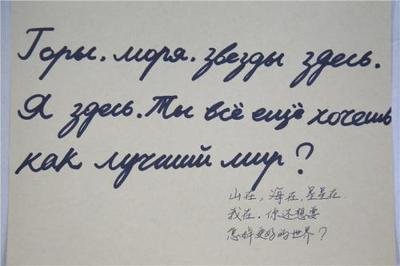 Горы. моря. звезды здесь.
Я здесь. Ты всё ещё хочешь
как лучший мир?
山在，海在，星星在
我在．你还想要
怎样更好的世界？